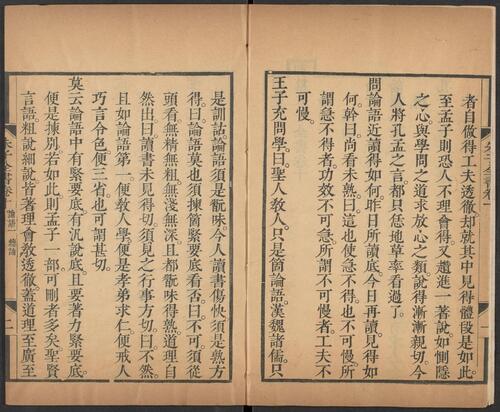 者自做得工夫透徹却就其中見得體段是如此。
至孟子則恐人不理會得。又趲進一著說如惻隱
之心與學問之道求放心之類說得漸漸親切今
人將孔孟之言都只恁地草率看過了。
問論語近讀得如何昨日所讀底今日再讀見得如
何幹曰尚看未熟曰這也使急不得也不可慢所
謂急不得者功效不可急所謂不可慢者工夫不
可慢。
王子充問學曰聖人教人只是箇論語漢魏諸儒只
是訓詁。論語須是翫味。今人讀書傷快須是熟方
得。曰論語莫也須揀箇緊要底看否曰不可須從
頭看無精無粗無淺無深且都翫味得熟道理自
然出曰讀書未見得切須見之行事方切曰不然。
且如論語第一。便教人學便是孝弟求仁。便戒人
巧言令色便三省也可謂甚切。
莫云論語中有緊要底有汎說底且要著力緊要底。
便是揀別若如此則孟子一部可刪者多矣聖賢
言語。粗說細說皆著理會教透徹蓋道理至廣至
論語一
總論
二